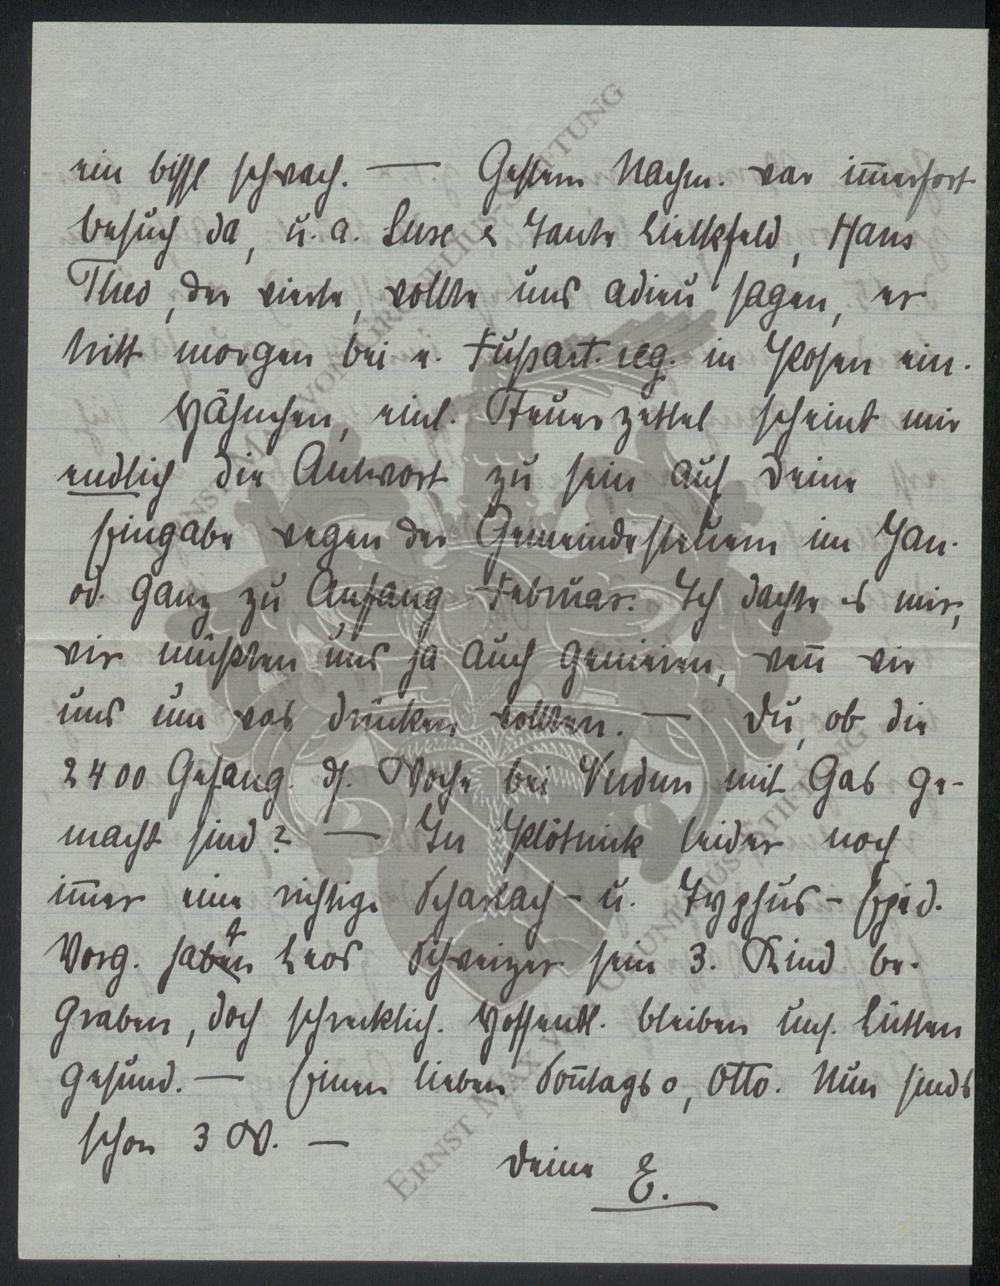 ein bißl schwach. — Gestern Nachm. war im̄erfort
besuch da, u. a. Luse & Tante Lielkfeld, Hans
Theo, der vierte, wollte uns adieu sagen, er
tritt morgen bei e. Fußart. reg. in Posen ein.
Hähnchen, einl. Steuerzettel scheint mir
endlich die Antwort zu sein auf Deine
Eingabe wegen der Gemeindesteuern im Jan.
od. ganz zu Anfang Februar. Ich dachte es mir,
wir müßten uns ja auch genieren, wen̄ wir
uns um was drücken wollten. — Du, ob die
2400 Gefang. ds. Woche bei Verdun mit Gas ge-
macht sind? — In Klötnick leider noch
im̄er eine richtige Scharlach- u. Typhus-Epid.
Vorg. haben Leos Schweizer sein 3. Kind be-
graben, doch schrecklich. Hoffentl. bleiben uns. Lütten
gesund. — Einen lieben Son̄tags o, Otto. Nun sinds
schon 3 W. —
Deine E.
ERNST MAX VON GRUNELIUS-STIFTUNG
ERNST MAX VON GRUNELIUS-STIFTUNG